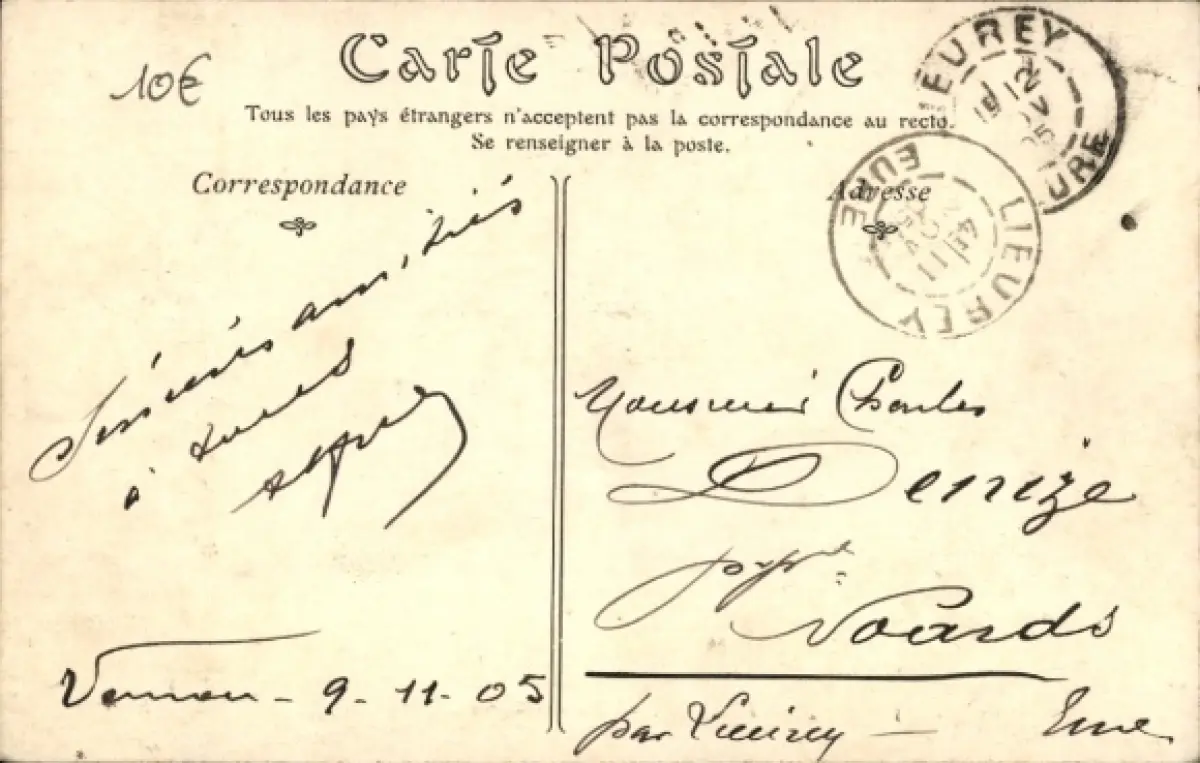 10€
Carte Postale
Tous les pays étrangers n'acceptent pas la correspondance au recto.
Se renseigner à la poste.
Correspondance
Adresse
LIEUREY
EURE
12
05
LIEUREY
EURE
11
Sincères amitiés
à tous
Monsieur Charles
Denize
Noards
par Lieurey — Eure
Vernon - 9 - 11 - 05